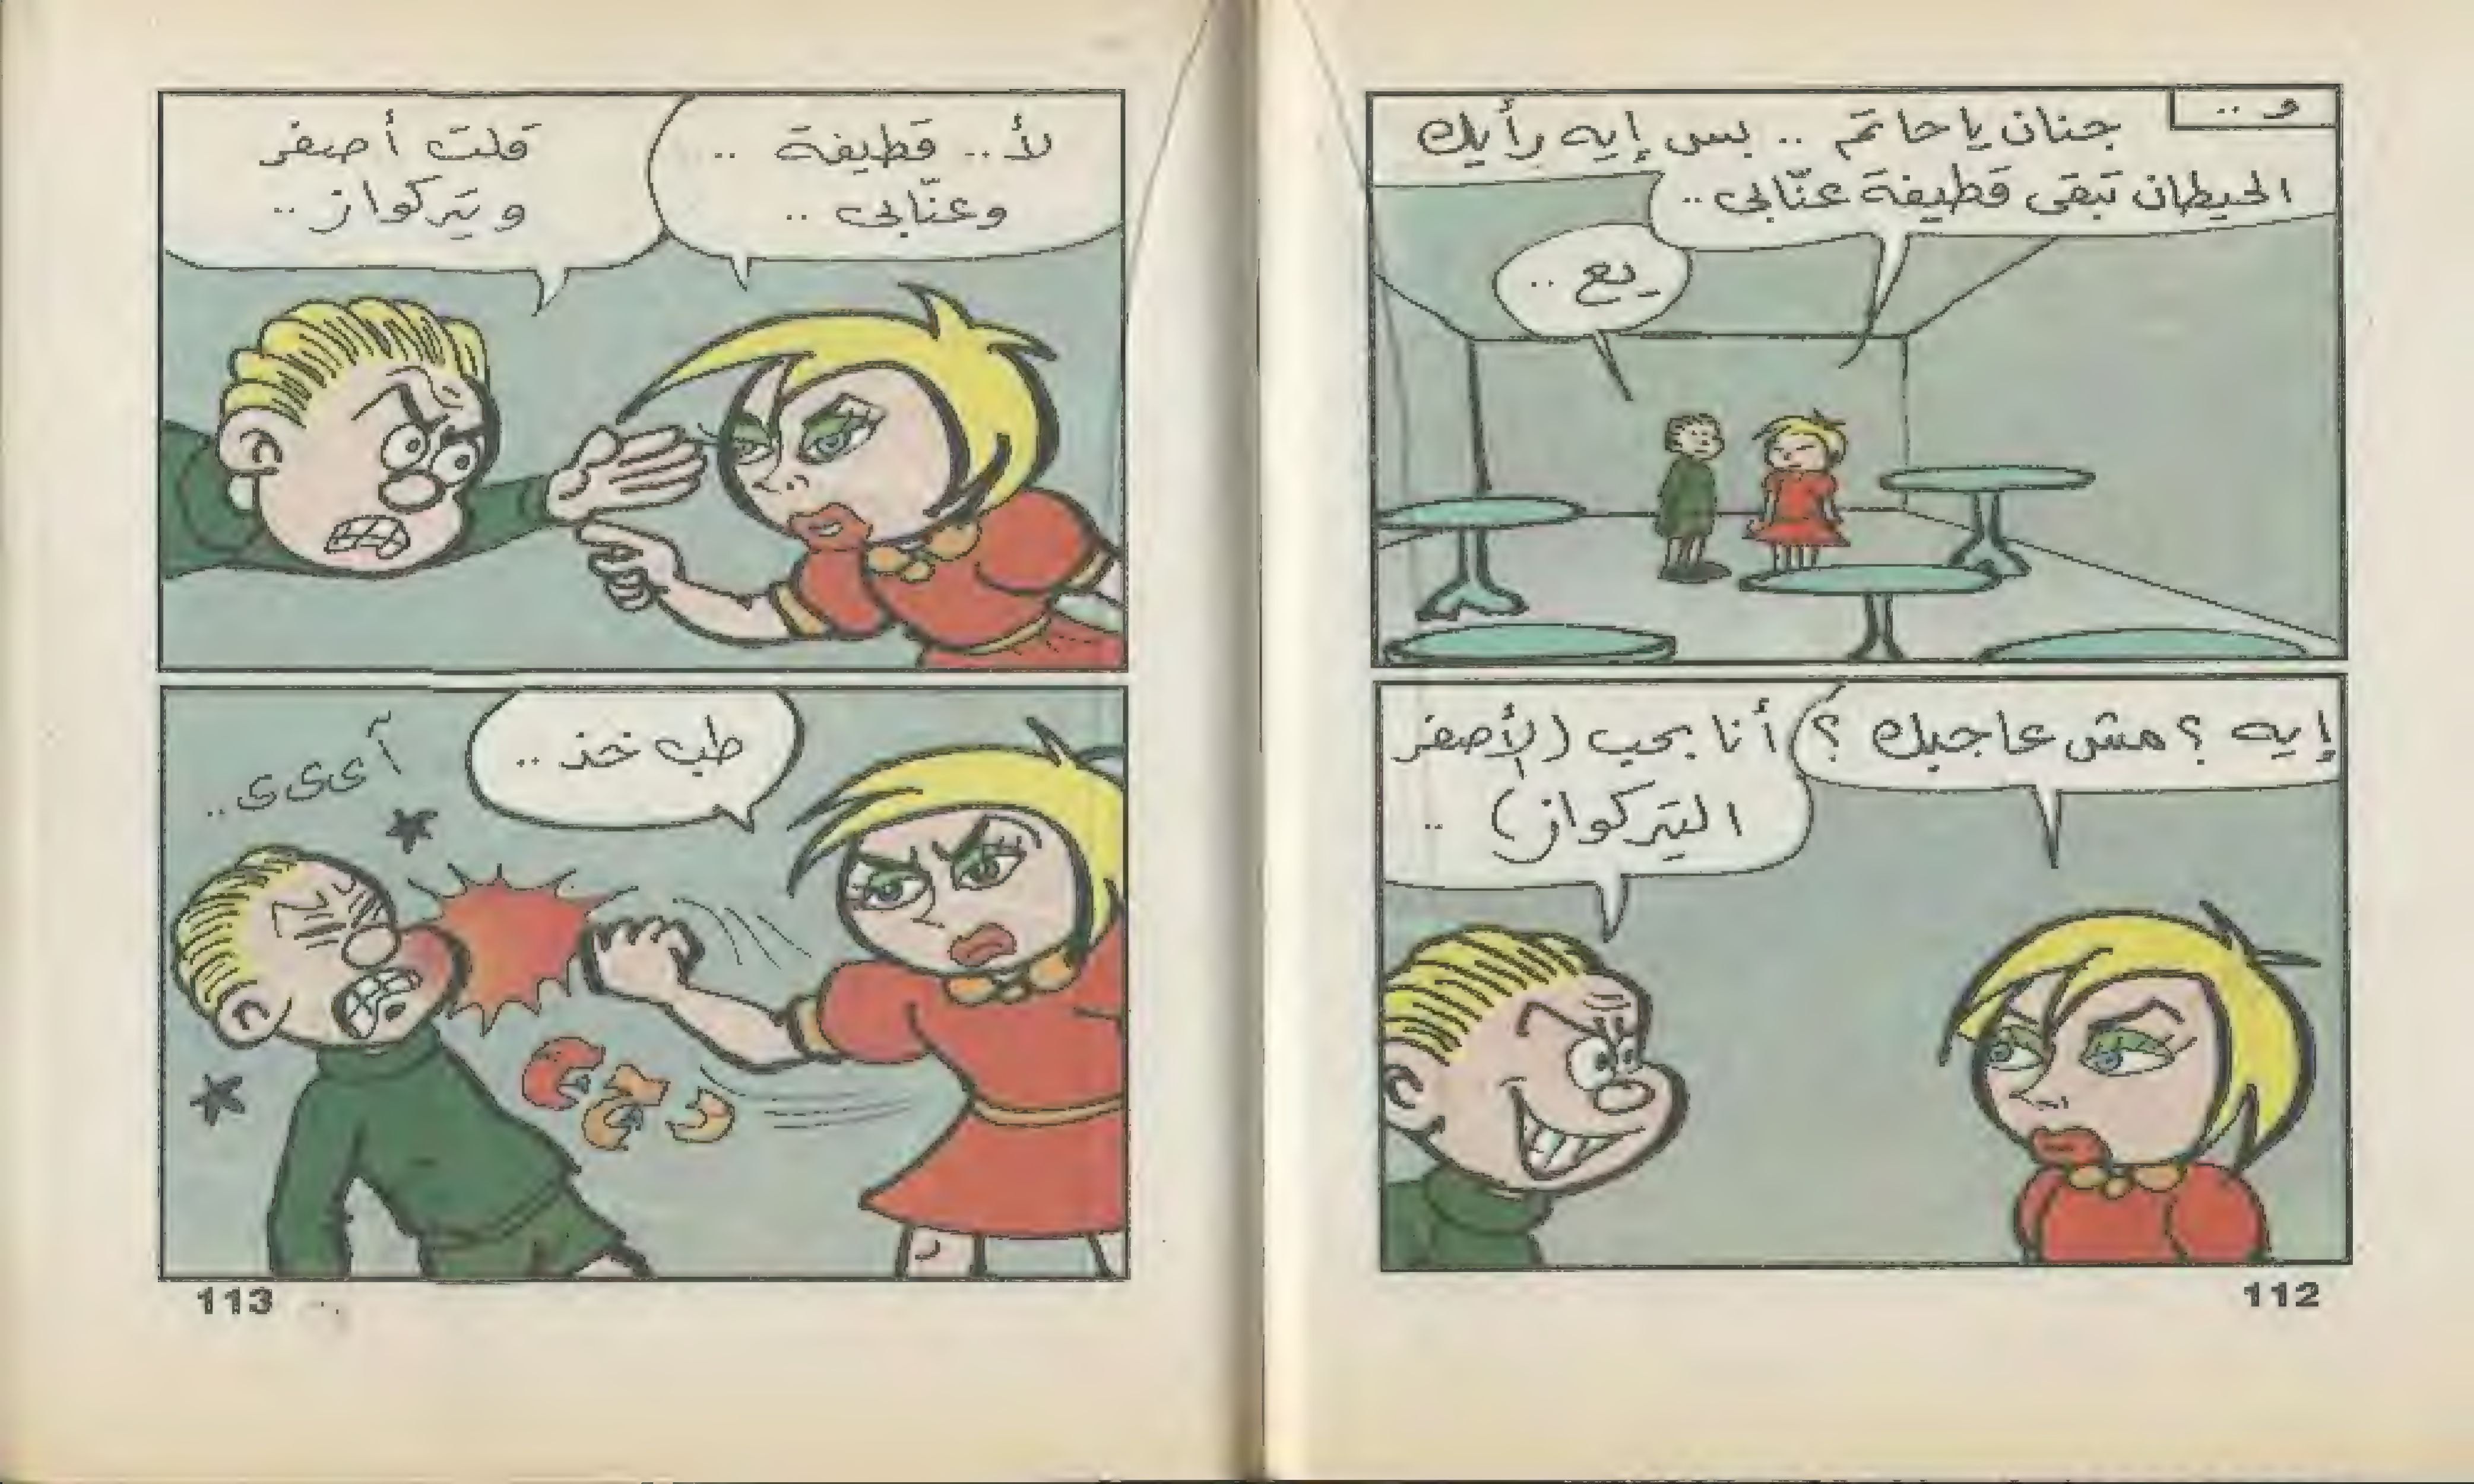 و ..
جنان ياحاتم .. بس إيه رأيك
الحيطان تبقى قطيفة عنّابى ..
يع ..
إيه ؟ مش عاجبك ؟
أنا بحب (الأصفر
التركواز) ..
112
لأ .. قطيفة ..
وعنّابى ..
قلت أصفر
وتركواز ..
طب خد ..
آ ى ى ى ..
113